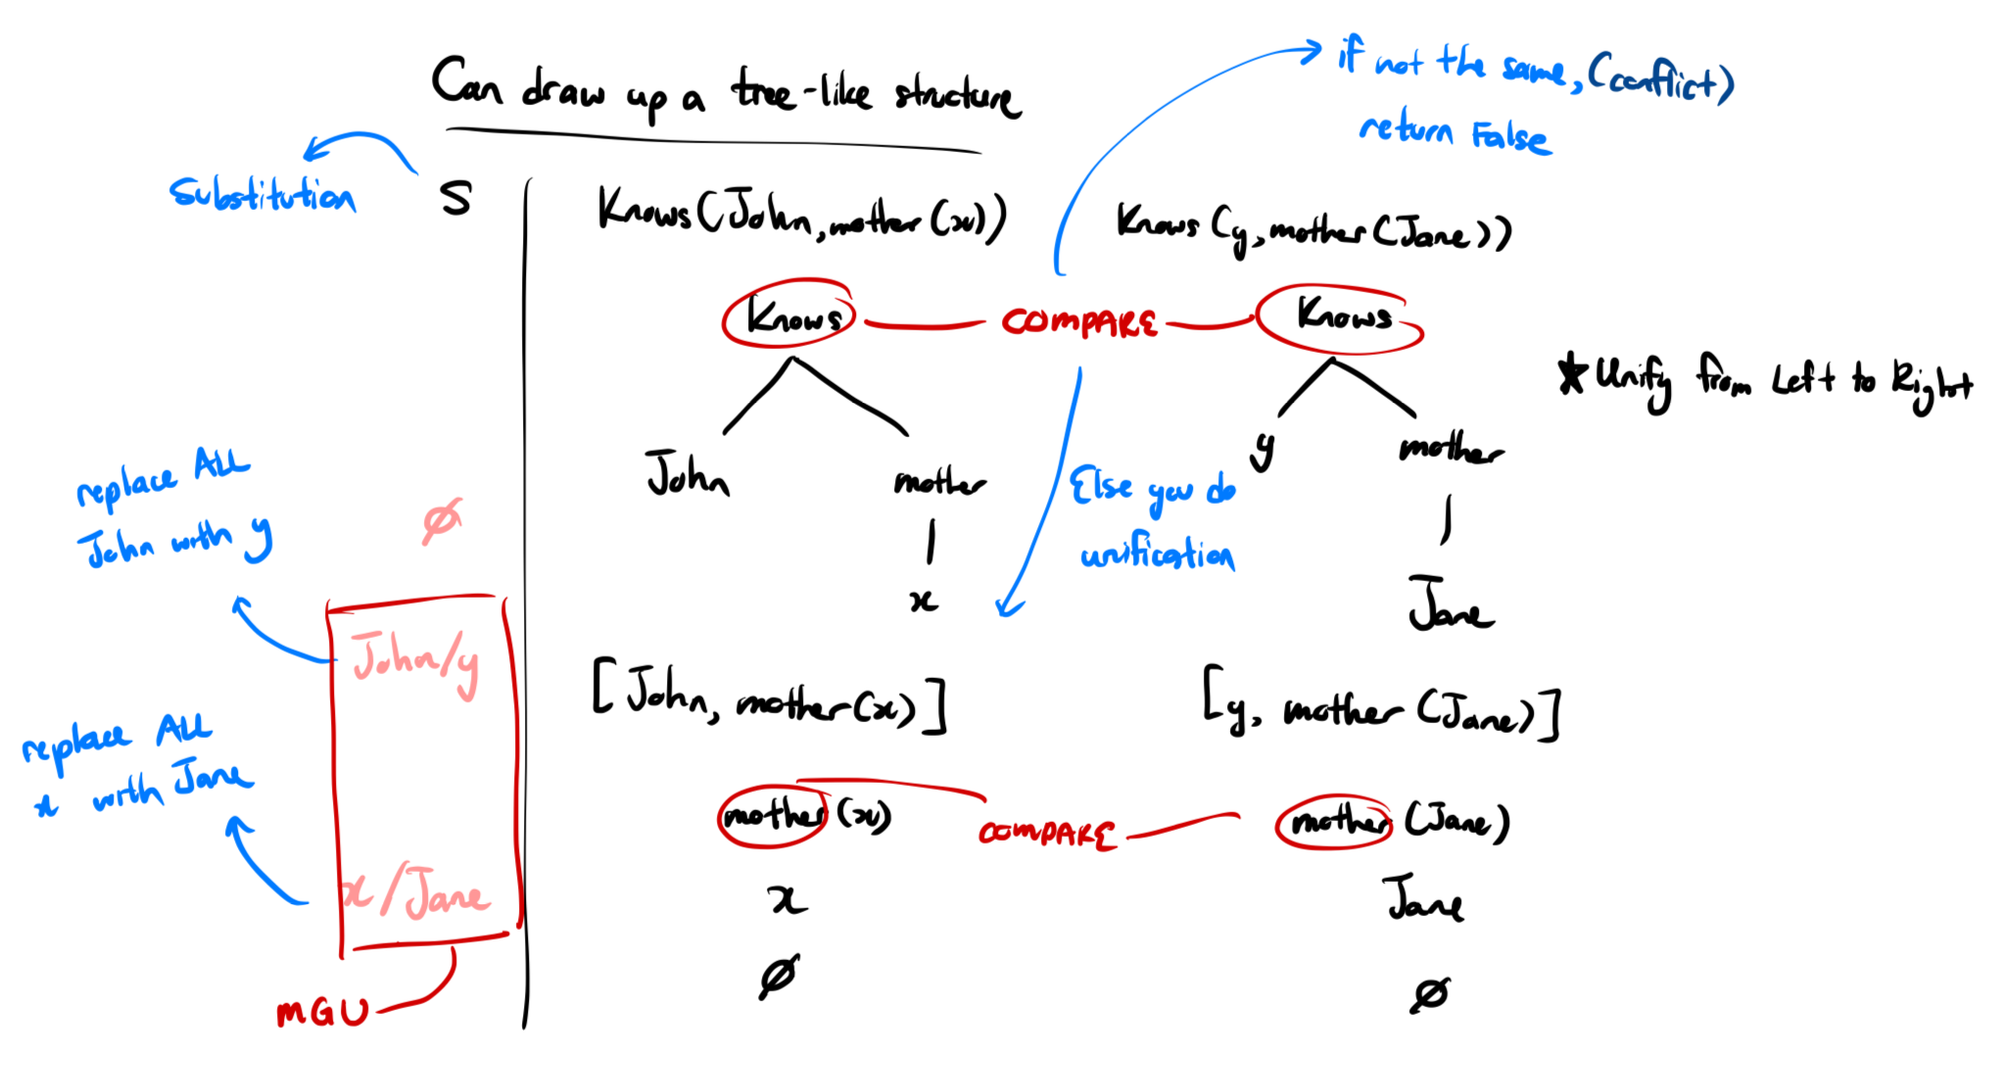 Can draw up a tree-like structure
if not the same, (conflict)
return False
Substitution
S
Knows(John, mother(x))
Knows(y, mother(Jane))
Knows
COMPARE
Knows
★ Unify from Left to Right
John
mother
x
y
mother
Jane
Else you do
unification
replace ALL
John with y
Ø
John/y
[John, mother(x)]
[y, mother(Jane)]
replace ALL
x with Jane
mother(x)
COMPARE
mother(Jane)
x/Jane
x
Jane
Ø
Ø
MGU